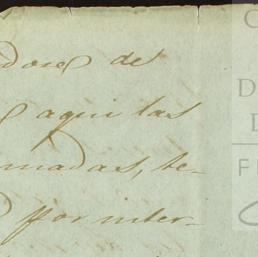 dores del
aqui las
madas, te-
por inter-
C
D
D
F